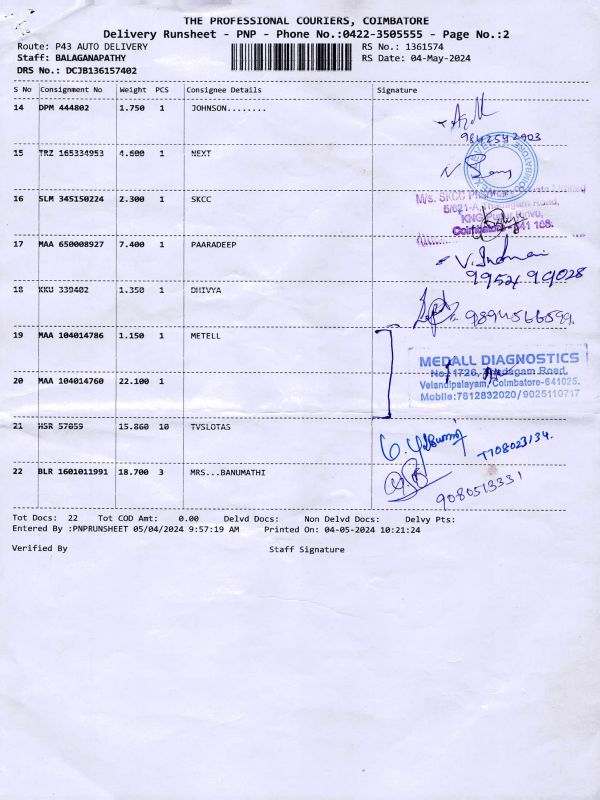 THE PROFESSIONAL COURIERS, COIMBATORE
Delivery Runsheet - PNP - Phone No.:0422-3505555 - Page No.:2
Route: P43 AUTO DELIVERY RS No.: 1361574
Staff: BALAGANAPATHY RS Date: 04-May-2024
DRS No.: DCJB136157402
S No Consignment No Weight PCS Consignee Details Signature
14 DPM 444802 1.750 1 JOHNSON........
9842542903
15 TRZ 165334953 4.600 1 NEXT
16 SLM 345150224 2.300 1 SKCC
M/s. SKCC
5/621-A, Road,
KNG
Coimbatore - 641 108.
17 MAA 650008927 7.400 1 PAARADEEP
9952499028
18 KKU 339402 1.350 1 DHIVYA
9894566599
19 MAA 104014786 1.150 1 METELL
MEDALL DIAGNOSTICS
No: 1726, Thadagam Road,
Velandipalayam, Coimbatore-641025.
Mobile:7812832020/9025110717
20 MAA 104014760 22.100 1
21 HSR 57059 15.860 10 TVSLOTAS
7708023134.
22 BLR 1601011991 18.700 3 MRS...BANUMATHI
9080513331
Tot Docs: 22 Tot COD Amt: 0.00 Delvd Docs: Non Delvd Docs: Delvy Pts:
Entered By :PNPRUNSHEET 05/04/2024 9:57:19 AM Printed On: 04-05-2024 10:21:24
Verified By Staff Signature